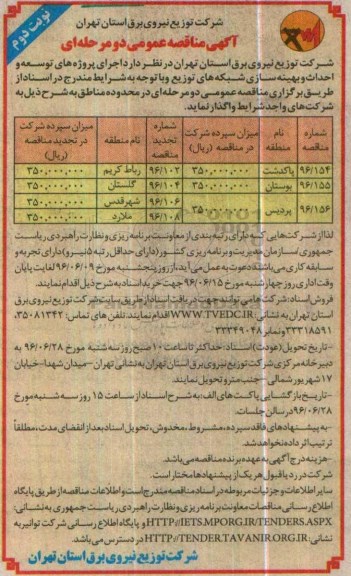 نوبت دوم
شرکت توزیع نیروی برق استان تهران
آگهی مناقصه عمومی دو مرحله‌ای
شرکت توزیع نیروی برق استان تهران در نظر دارد اجرای پروژه های توسعه و
احداث و بهینه سازی شبکه های توزیع و با توجه به شرایط مندرج در اسناد از
طریق برگزاری مناقصه عمومی دو مرحله‌ای در محدوده مناطق به شرح ذیل به
شرکت‌های واجد شرایط واگذار نماید.
شماره مناقصه | نام منطقه | میزان سپرده شرکت در مناقصه (ریال) | شماره تجدید مناقصه | نام منطقه | میزان سپرده شرکت در تجدید مناقصه (ریال)
۹۶/۱۵۴ | پاکدشت | ۳۵۰,۰۰۰,۰۰۰ | ۹۶/۱۰۲ | رباط کریم | ۳۵۰,۰۰۰,۰۰۰
۹۶/۱۵۵ | بوستان | ۳۵۰,۰۰۰,۰۰۰ | ۹۶/۱۰۴ | گلستان | ۳۵۰,۰۰۰,۰۰۰
۹۶/۱۵۶ | پردیس | ۳۵۰,۰۰۰,۰۰۰ | ۹۶/۱۰۶ | شهرقدس | ۳۵۰,۰۰۰,۰۰۰
۹۶/۱۰۸ | ملارد | ۳۵۰,۰۰۰,۰۰۰
لذا از شرکت‌هایی که دارای رتبه بندی از معاونت برنامه ریزی و نظارت راهبردی ریاست
جمهوری /سازمان مدیریت و برنامه ریزی کشور (دارای حداقل رتبه ۵ نیرو) دارای تجربه و
سابقه کاری می‌باشند دعوت به عمل می آید، از روز پنجشنبه مورخ ۹۶/۰۶/۰۹ لغایت پایان
وقت اداری روز چهارشنبه مورخ ۹۶/۰۶/۱۵ جهت خرید اسناد به شرح ذیل اقدام نمایند.
فروش اسناد: شرکت‌ها می توانند جهت دریافت اسناد از طریق سایت شرکت توزیع نیروی برق
استان تهران به نشانی: WWW.TVEDC.IR اقدام نمایند. تلفن های تماس: ۳۵۰۸۱۳۴۲،
۳۳۳۱۸۵۹۱ و نمابر ۳۳۳۴۹۰۴۸
-تاریخ تحویل (عودت) اسناد: حداکثر تا ساعت ۱۰ صبح روز سه شنبه مورخ ۹۶/۰۶/۲۸ به
دبیرخانه مرکزی شرکت توزیع نیروی برق استان تهران به نشانی تهران – میدان شهدا – خیابان
۱۷ شهریور شمالی – جنب مترو تحویل نمایند.
-تاریخ بازگشایی پاکت‌های الف: به شرح اسناد از ساعت ۱۵ روز سه شنبه مورخ
۹۶/۰۶/۲۸ در سالن جلسات.
-به پیشنهادهای فاقد سپرده، مشروط، مخدوش، تحویل اسناد بعد از انقضای مدت، مطلقاً
ترتیب اثر داده نخواهد شد.
-هزینه درج آگهی به عهده برنده مناقصه می‌باشد.
شرکت در رد یا قبول هر یک از پیشنهادها مختار است.
سایر اطلاعات و جزئیات مربوطه در اسناد مناقصه مندرج است و اطلاعات مناقصه از طریق پایگاه
اطلاع رسانی مناقصات معاونت برنامه ریزی و نظارت راهبردی ریاست جمهوری به نشانی:
HTTP//IETS.MPORG.IR/TENDERS.ASPX و پایگاه اطلاع رسانی شرکت توانیر به
نشانی: HTTP//TENDER.TAVANIR.ORG.IR در دسترس می باشد.
شرکت توزیع نیروی برق استان تهران